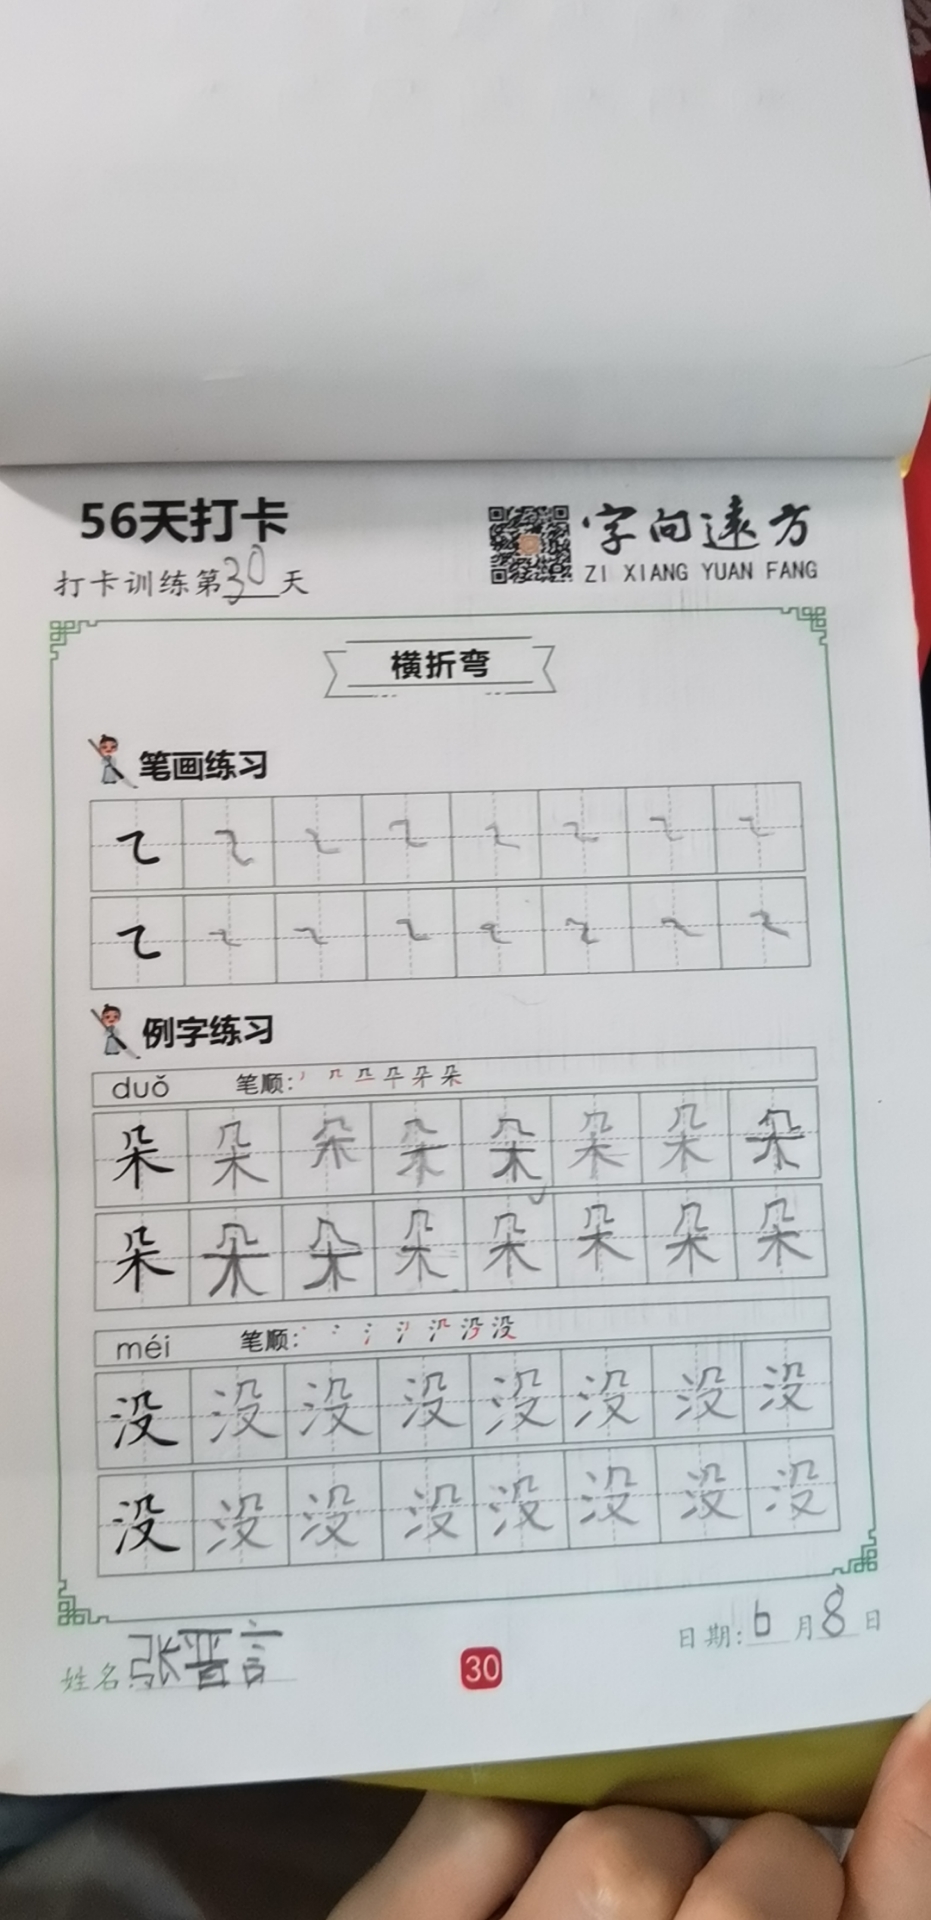 56天打卡
字向远方
打卡训练第30天
ZI XIANG YUAN FANG
横折弯
笔画练习
㇍ ㇍ ㇍ ㇍ ㇍ ㇍ ㇍ ㇍
㇍ ㇍ ㇍ ㇍ ㇍ ㇍ ㇍ ㇍
例字练习
duǒ 笔顺:
朵 朵 朵 朵 朵 朵 朵 朵
朵 朵 朵 朵 朵 朵 朵 朵
méi 笔顺:
没 没 没 没 没 没 没 没
没 没 没 没 没 没 没 没
姓名:张晋言
30
日期:6月8日